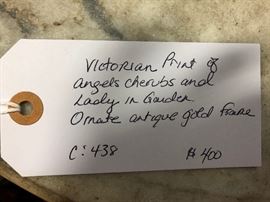 Victorian Print of
angels cherubs and
Lady in Garden
Ornate antique gold frame
C: 438 $400